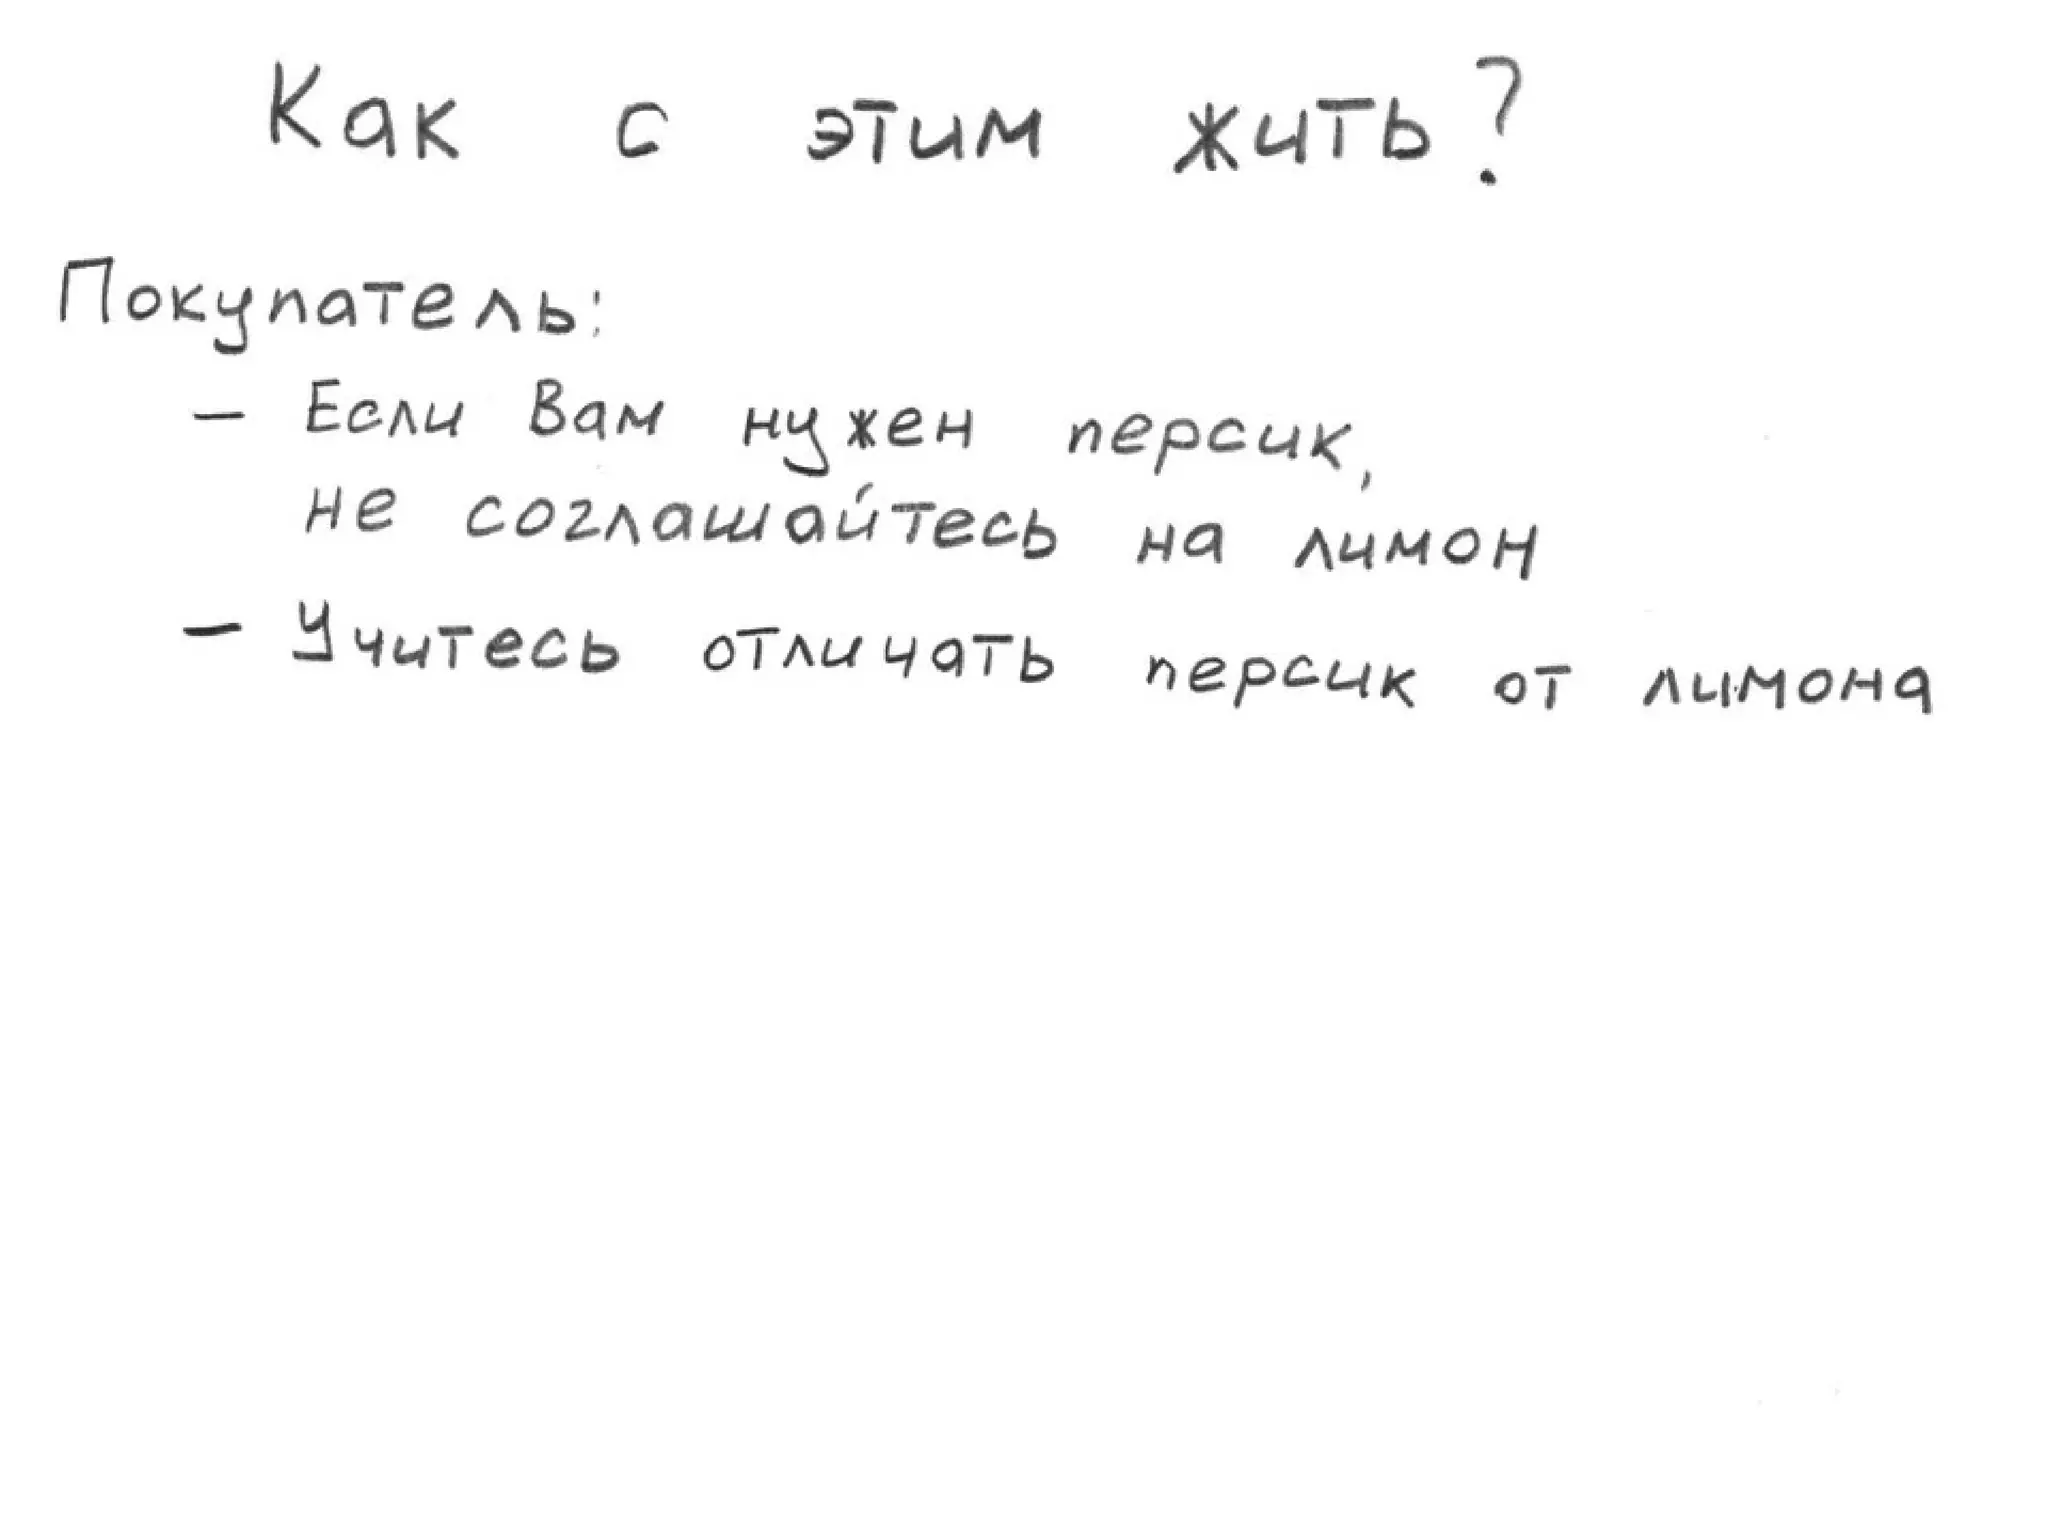 Как с этим жить?
Покупатель:
- Если Вам нужен персик,
не соглашайтесь на лимон
- Учитесь отличать персик от лимона